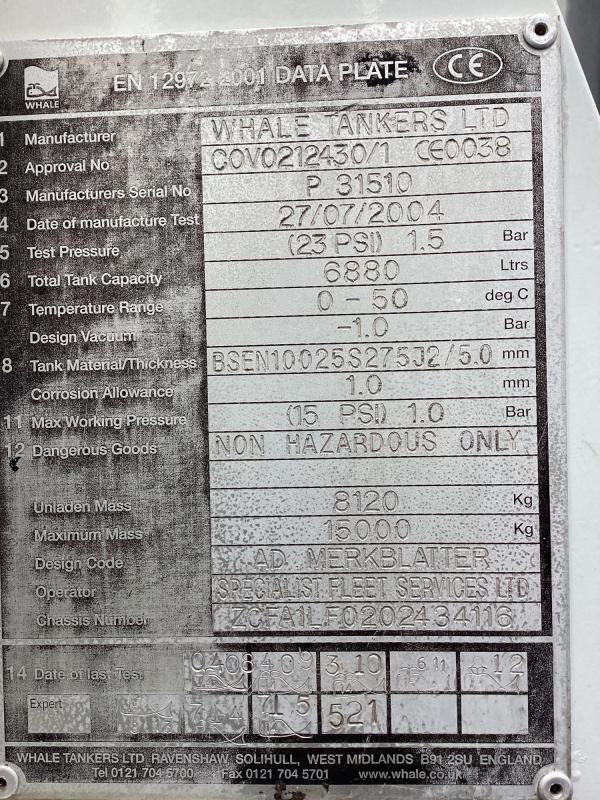 WHALE
EN 12972 2001 DATA PLATE CE
1 Manufacturer WHALE TANKERS LTD
2 Approval No COV0212430/1 CE0038
3 Manufacturers Serial No P 31510
4 Date of manufacture Test 27/07/2004
5 Test Pressure (23 PSI) 1.5 Bar
6 Total Tank Capacity 6880 Ltrs
7 Temperature Range 0 - 50 deg C
Design Vacuum -1.0 Bar
8 Tank Material/Thickness BSEN10025S275J2/5.0 mm
Corrosion Allowance 1.0 mm
11 Max Working Pressure (15 PSI) 1.0 Bar
12 Dangerous Goods NON HAZARDOUS ONLY
Unladen Mass 8120 Kg
Maximum Mass 15000 Kg
Design Code AD MERKBLATTER
Operator SPECIALIST FLEET SERVICES LTD
Chassis Number ZCFA1LF0202434116
14 Date of last Test 0408 409 3 10 6 11 12
Expert 521
WHALE TANKERS LTD RAVENSHAW SOLIHULL, WEST MIDLANDS B91 2SU ENGLAND
Tel 0121 704 5700 Fax 0121 704 5701 www.whale.co.uk